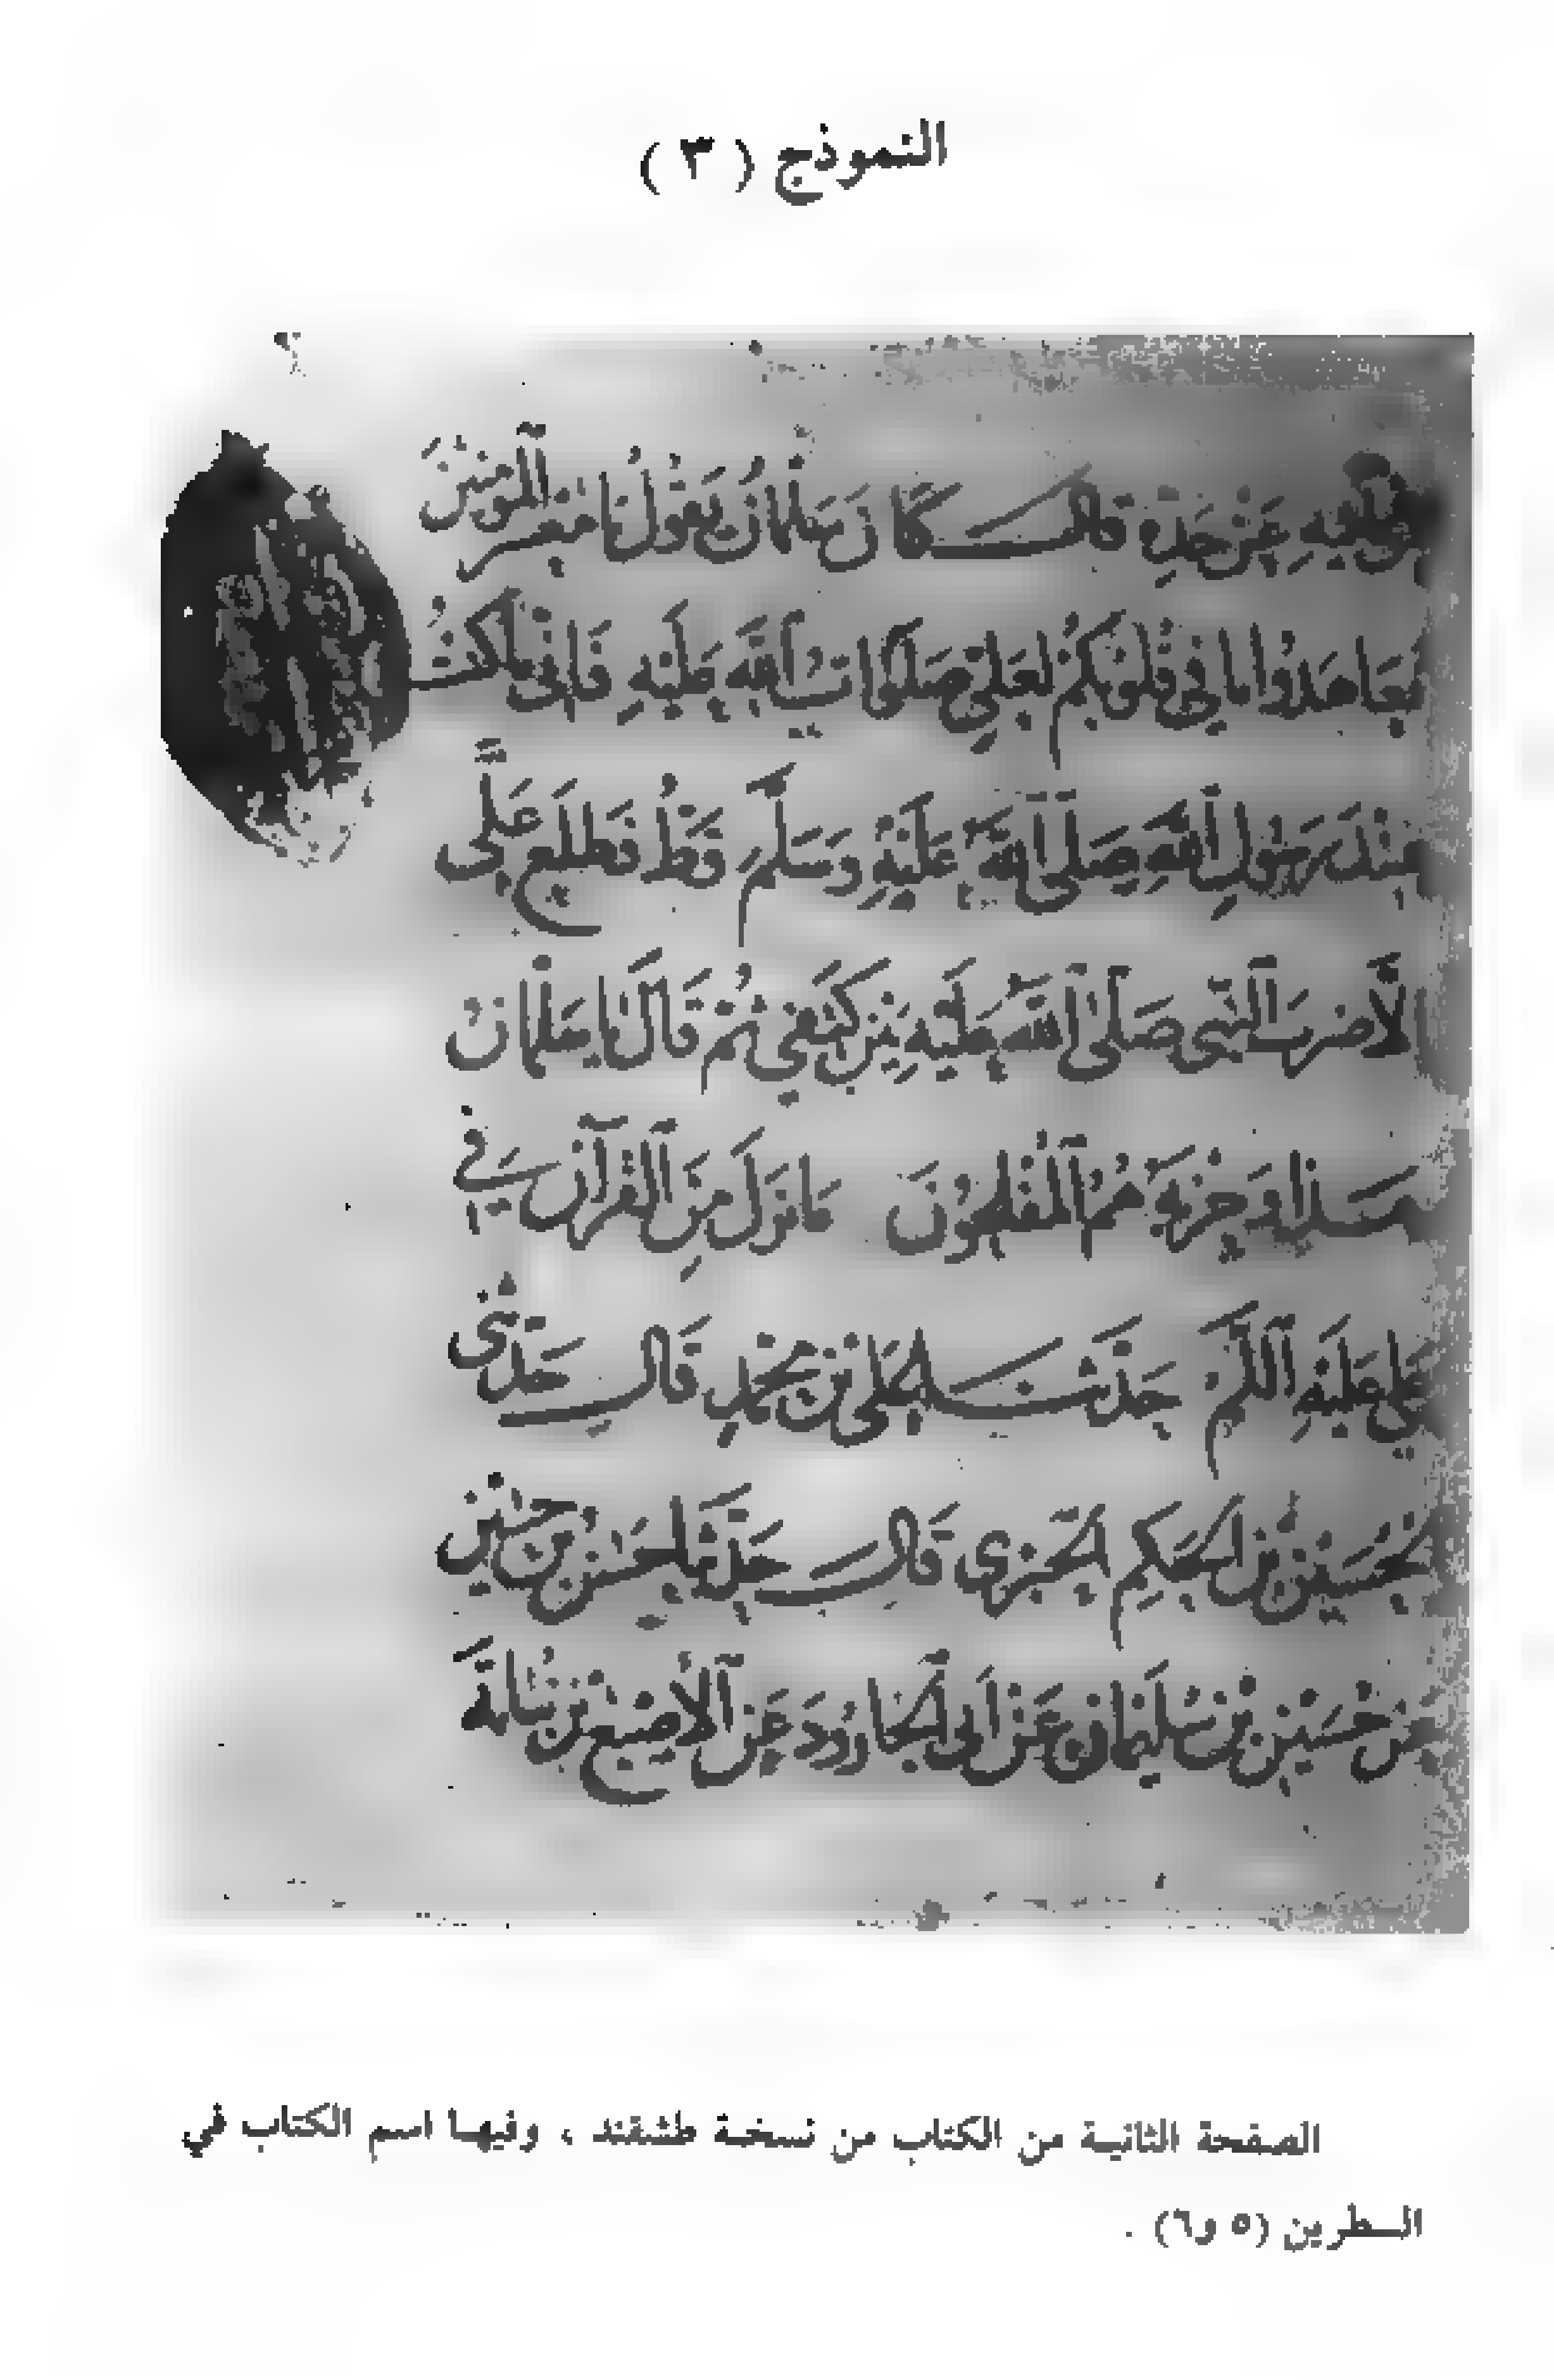 النموذج ( ٣ )
عن أبيه عَنْ جَدِّهِ قال كَانَ سَلْمَانُ يَقُولُ يَا مَعْشَرَ ٱلْمُؤمِنِيْنَ
تعاهدوا ما فِي قُلُوْبِكُمْ لِعَلِيٍّ صَلَوَاتُ ٱللَّهِ عَلَيْهِ فَإِنِّيْ مَا كُنْتُ
عِنْدَ رَسُوْلِ ٱللَّهِ صَلَّى ٱللَّهُ عَلَيْهِ وَسَلَّمَ قَطُّ فَطَلَعَ عَلِيٌّ
إلَّا ضَرَبَ ٱلنَّبِيُّ صَلَّى ٱللَّهُ عَلَيْهِ بَيْنَ كَتِفَيَّ ثُمَّ قَالَ يَا سَلْمَانُ
هٰذَا وَحِزْبُهُ هُمُ ٱلْمُفْلِحُوْنَ مَا نَزَلَ مِنَ ٱلْقُرْآنِ فِي
عَلِيٍّ عَلَيْهِ ٱلسَّلَمُ حَدَّثَنَا عَلِيُّ بْنُ مُحَمَّدٍ قَالَ حَدَّثَنِي
الْحُسَيْنُ بْنُ الْحَكَمِ الْحِبَرِي قَالَ حَدَّثَنَا حَسَنُ بْنُ حُسَيْنٍ
عَنْ حُسَيْنِ بْنِ سُلَيْمَانَ عَنْ أَبِي ٱلْجَارُودِ عَنِ ٱلْأَصْبَغِ بْنِ نُبَاتَةَ
الصفحة الثانية من الكتاب من نسخة طشقند ، وفيها اسم الكتاب في
السطرين (٥ و٦) .